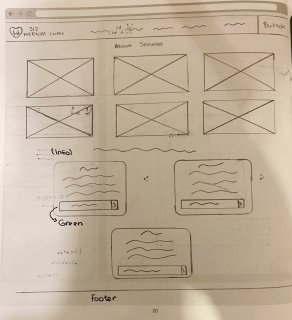 312
MEDICAL CLINIC
Button
About Services
(info)
Green
footer
20